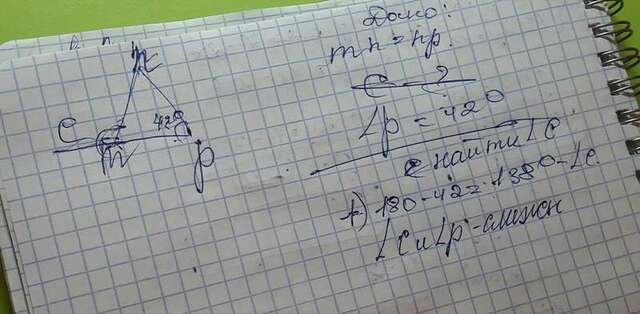 n
C
m
42°
p
Дано:
mn = np.
∠p = 42°
найти ∠C
1) 180-42=138°-∠C.
∠C и ∠p-смежн